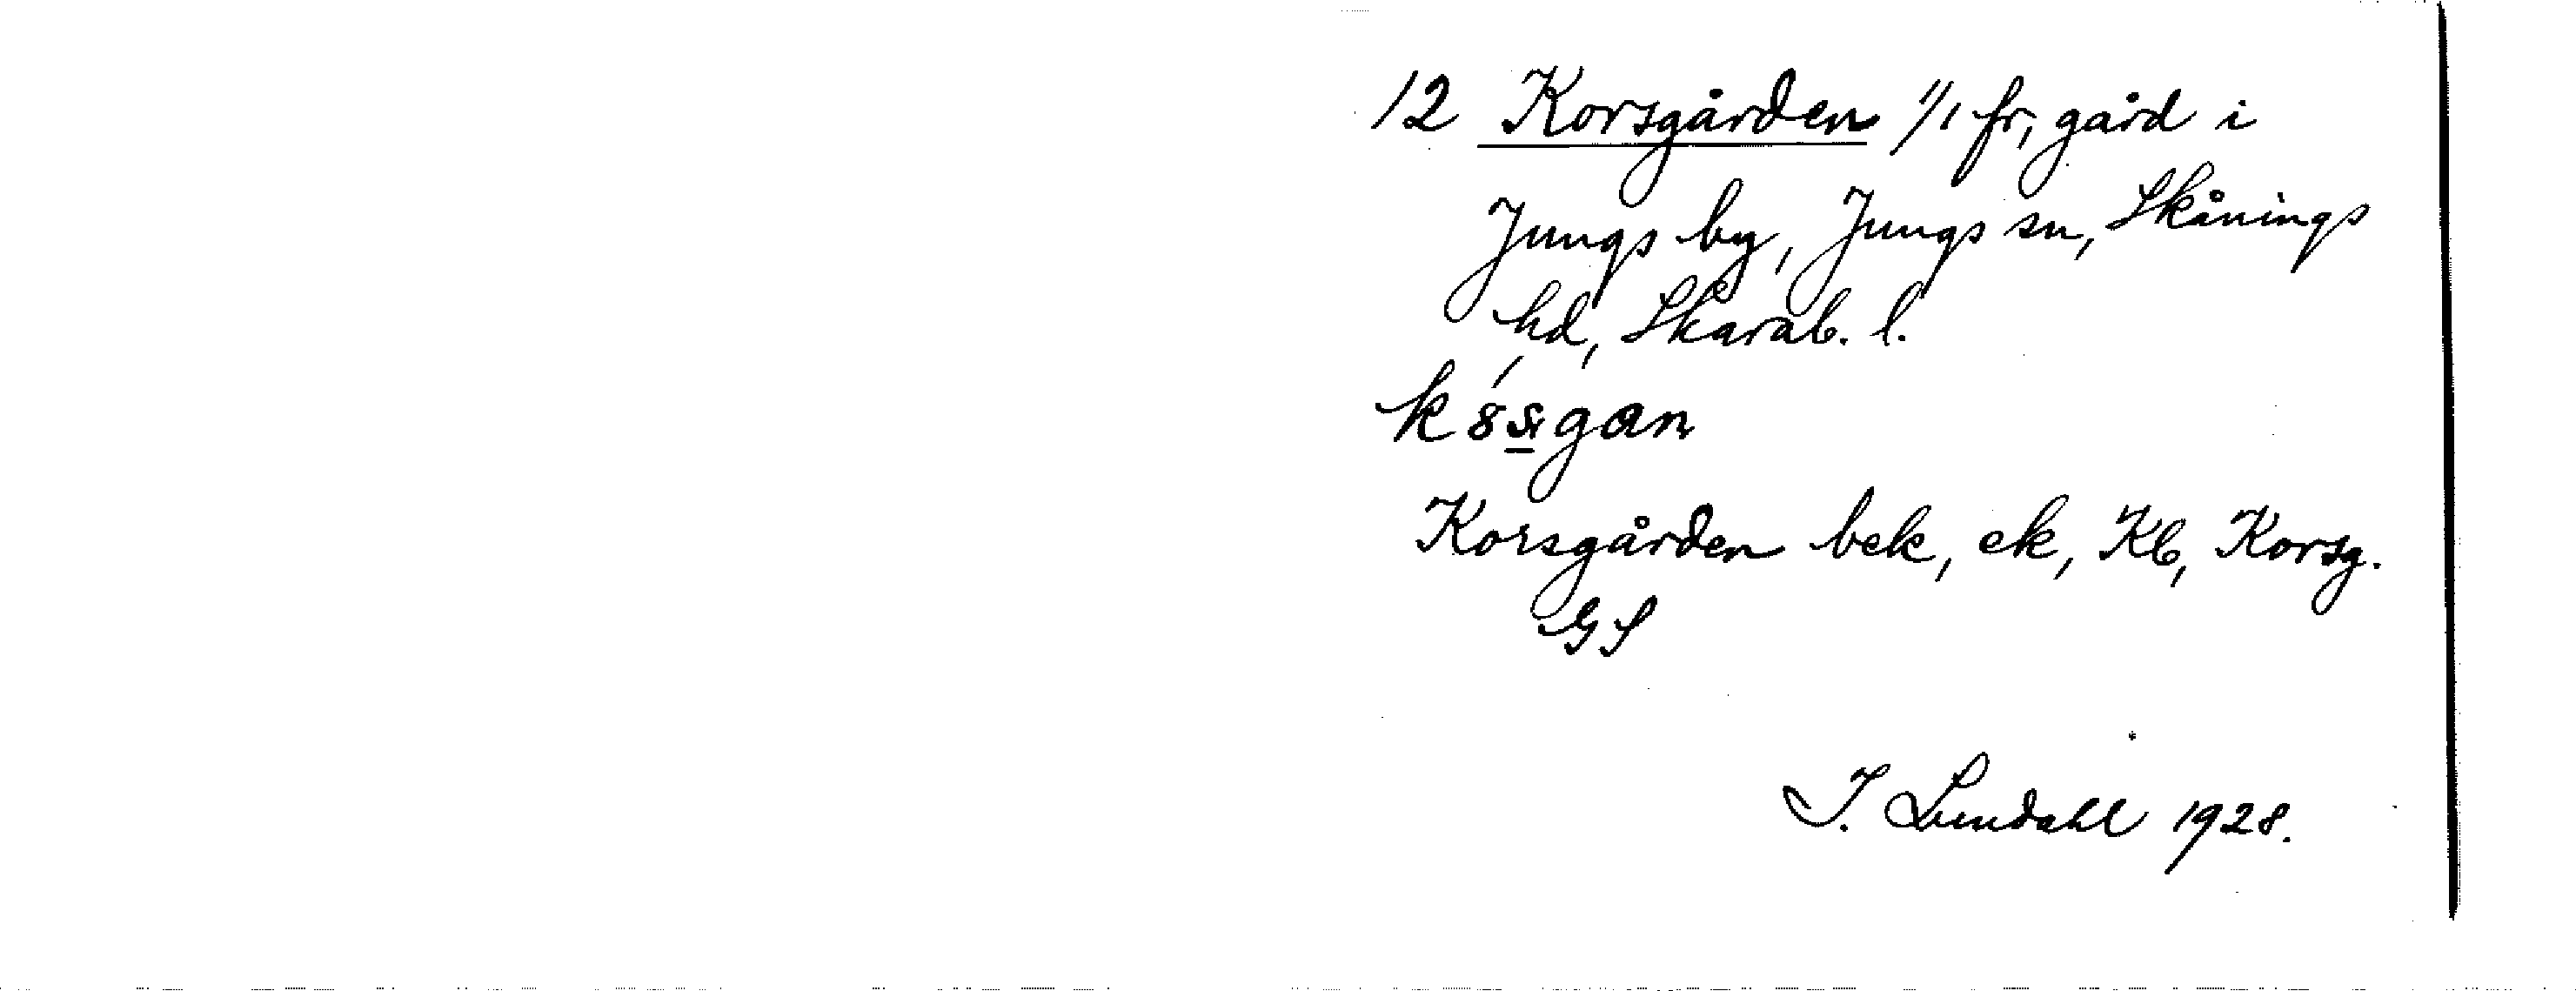 12 Korsgården 1/1 fr, gård i
Jungs by, Jungs sn, Skånings
hd, Skarab. l.
k8́s̲gan
Korsgården bek, ek, Kb, Korsg.
GS
I. Lundahl 1928.